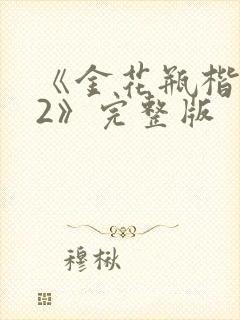 《金花瓶楷
2》完整版
穆楸